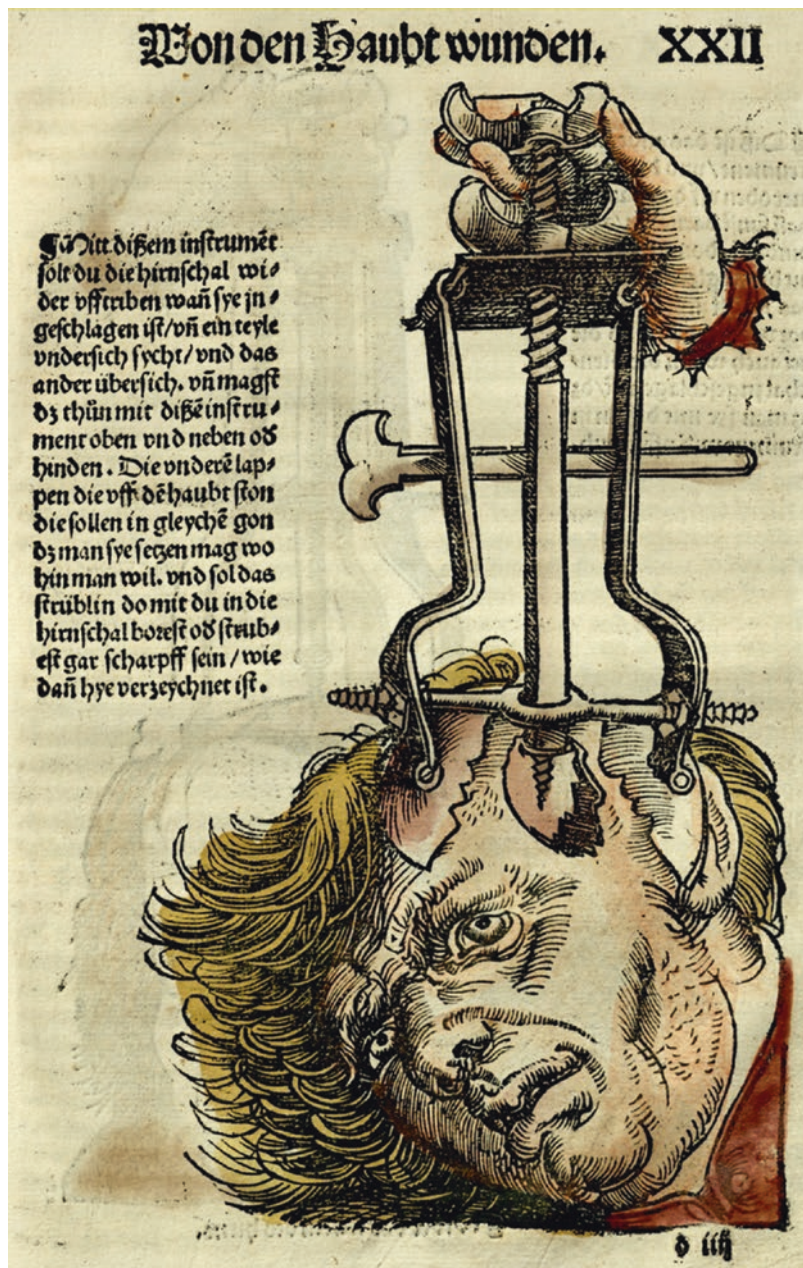 Von den Haubt wunden. XXII
¶ Mitt dißem instrumẽt
solt du die hirnschal wi⸗
der vfftriben wañ sye jn⸗
geschlagen ist/vñ ein teyle
vndersich sycht/vnd das
ander übersich. vñ magst
dz thůn mit dißẽ instru⸗
ment oben vnd neben oď
hinden. Die vnderẽ lap⸗
pen die vff dẽ haubt ston
die sollen in gleychẽ gon
dz man sye setzen mag wo
hin man wil. vnd sol das
strüblin do mit du in die
hirnschal borest oď strub⸗
est gar scharpff sein/wie
dañ hye verzeychnet ist.
d iiij